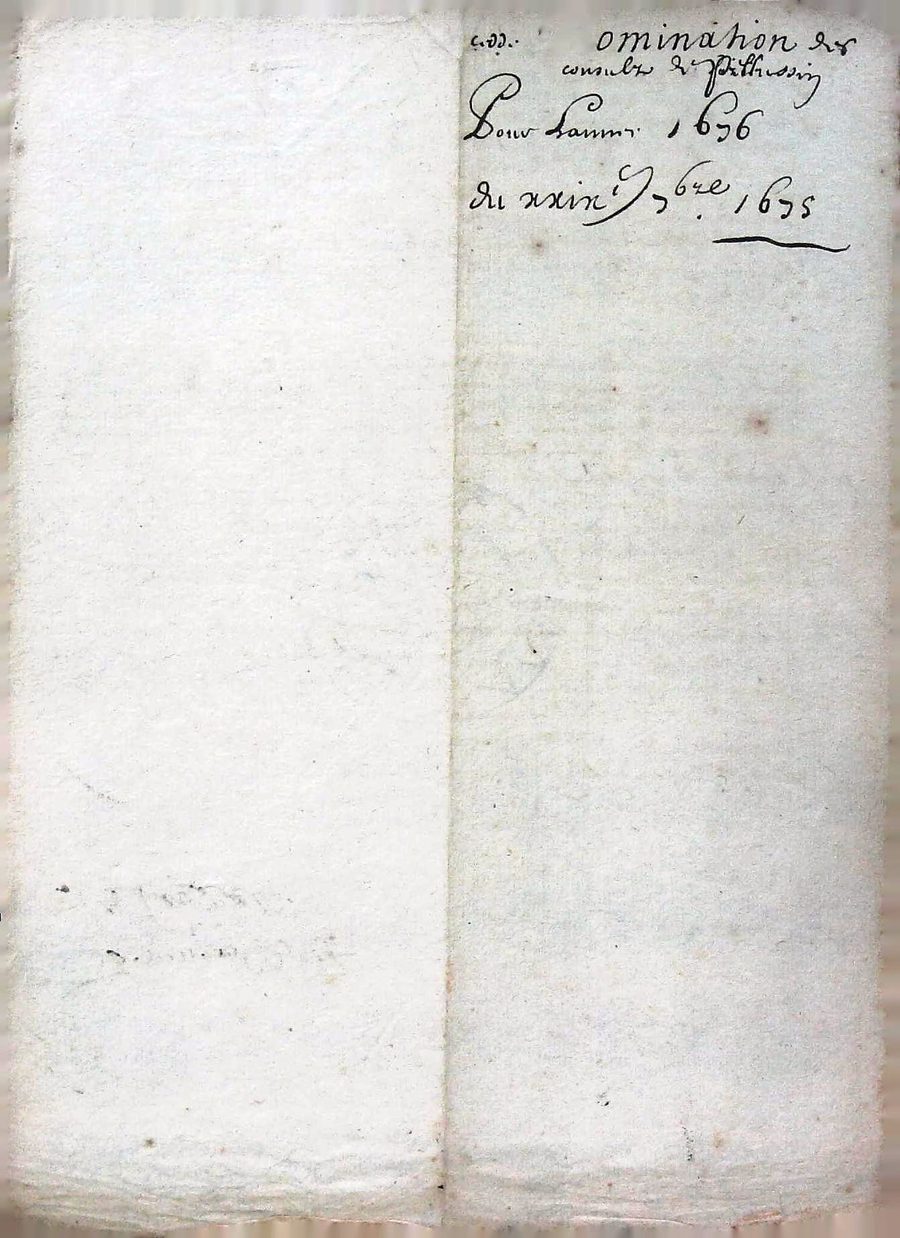 omination des
consulz de Pellussin
Pour Lannee 1676
du xxix 7bre 1675